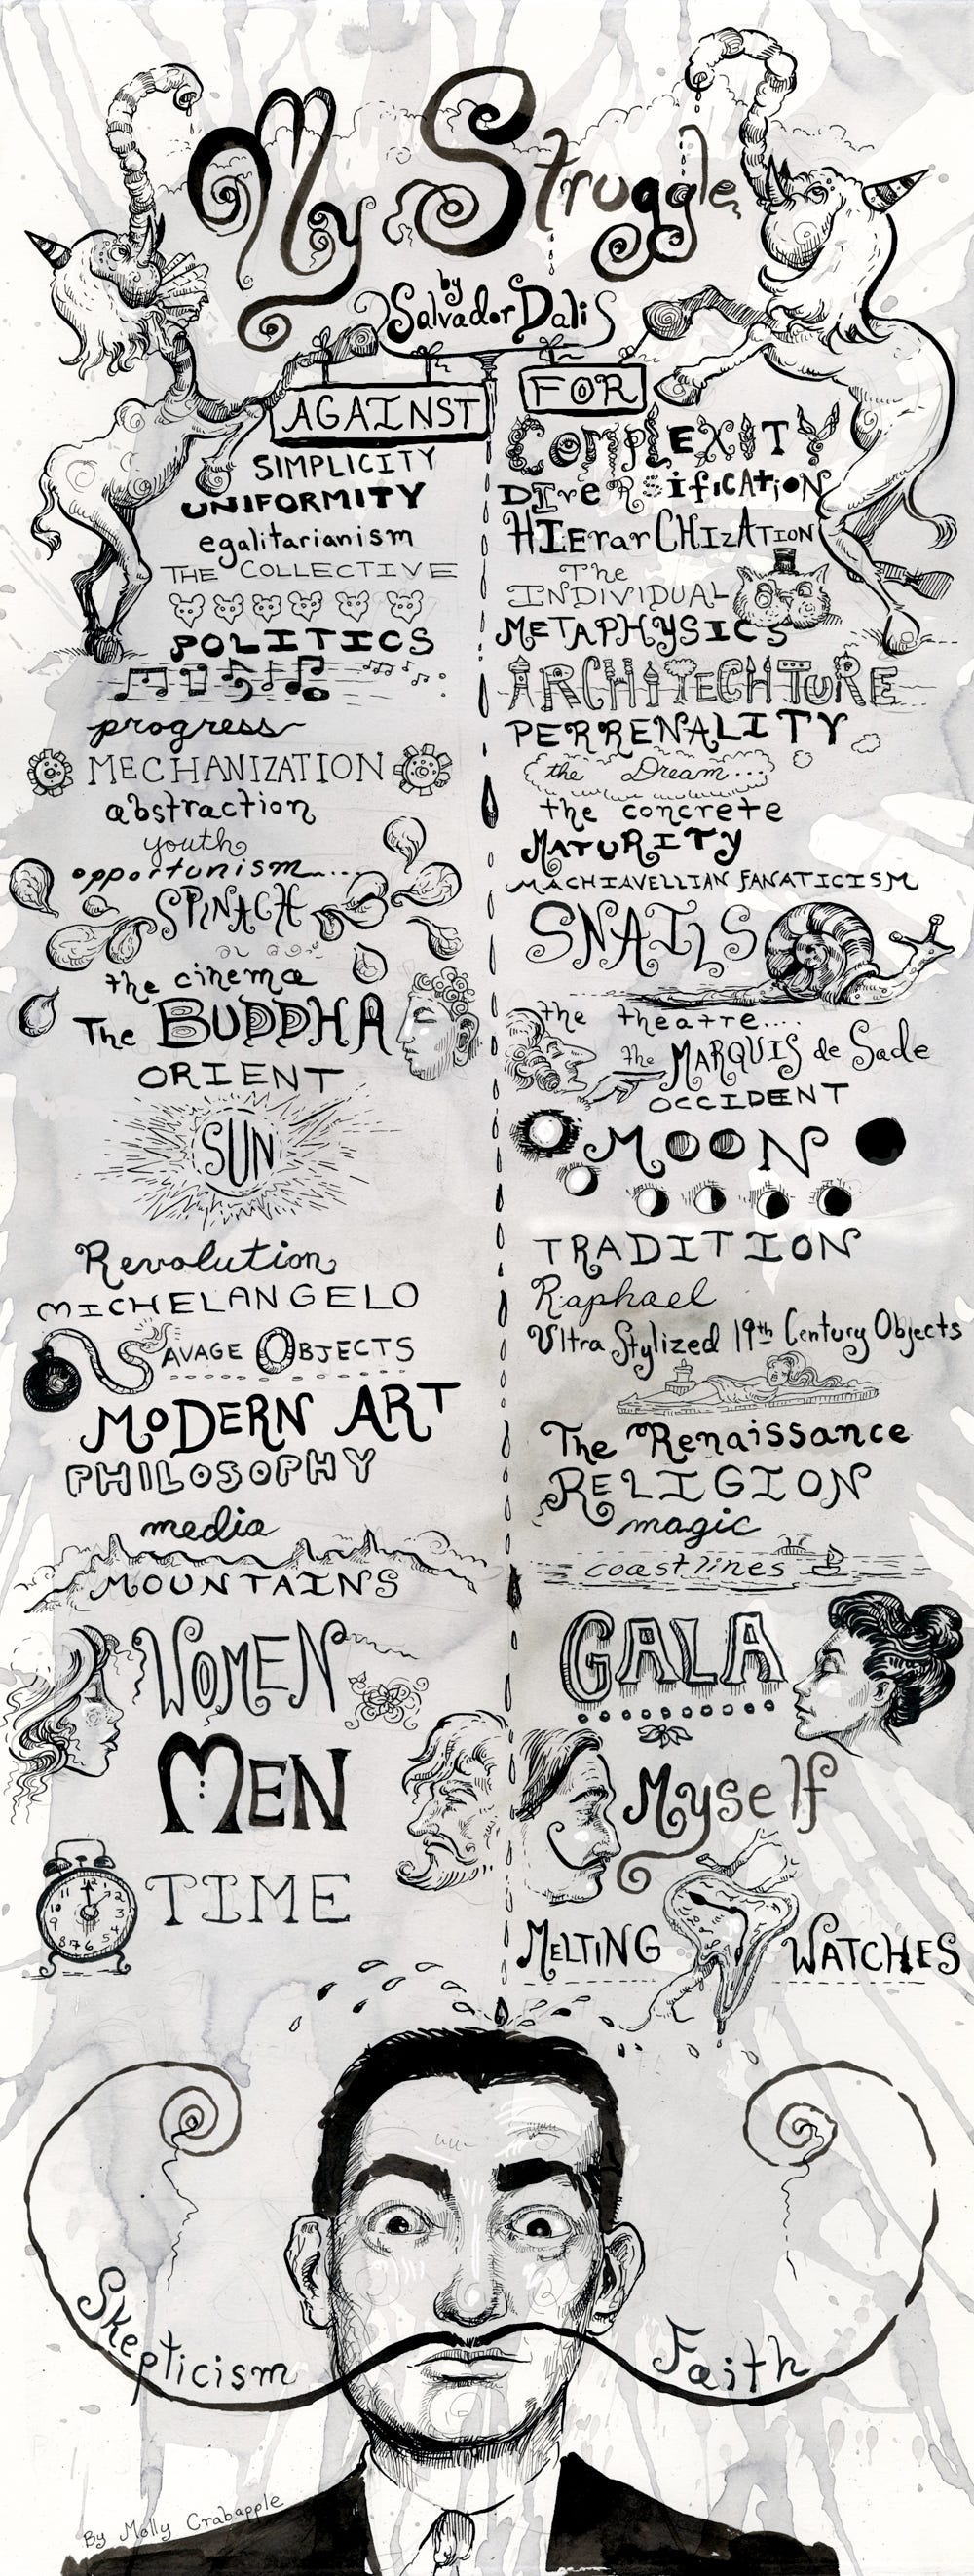 My Struggle
by
Salvador Dali
AGAINST
SIMPLICITY
UNIFORMITY
egalitarianism
THE COLLECTIVE
POLITICS
progress
MECHANIZATION
abstraction
youth
opportunism....
SPINACH
the cinema
The BUDDHA
ORIENT
SUN
Revolution
MICHELANGELO
SAVAGE OBJECTS
MODERN ART
PHILOSOPHY
media
MOUNTAINS
WOMEN
MEN
11 12 1 2 3 4 5 6 7 8 9 10
TIME
FOR
COMPLEXITY
DIveRsifiCATION
HIErarCHIzATION
The
INDIVIDUAL
METAPHYSICS
ARCHITECHTURE
PERRENALITY
the Dream...
the concrete
MATURITY
MACHIAVELLIAN FANATICISM
SNAILS
the theatre....
the MARQUIS de Sade
OCCIDENT
MOON
TRADITION
Raphael
Ultra Stylized 19th Century Objects
The Renaissance
RELIGION
magic
coastlines
GALA
Myself
MELTING WATCHES
Skepticism
Faith
By Molly Crabapple